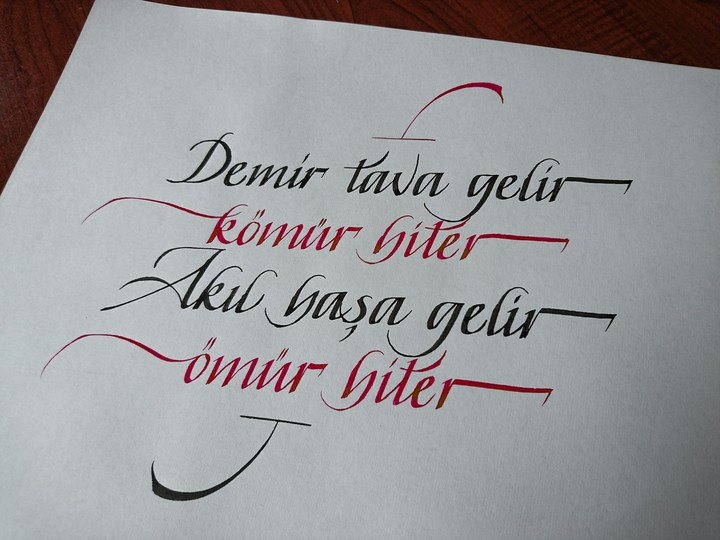 Demir tava gelir
kömür biter
Akıl başa gelir
ömür biter